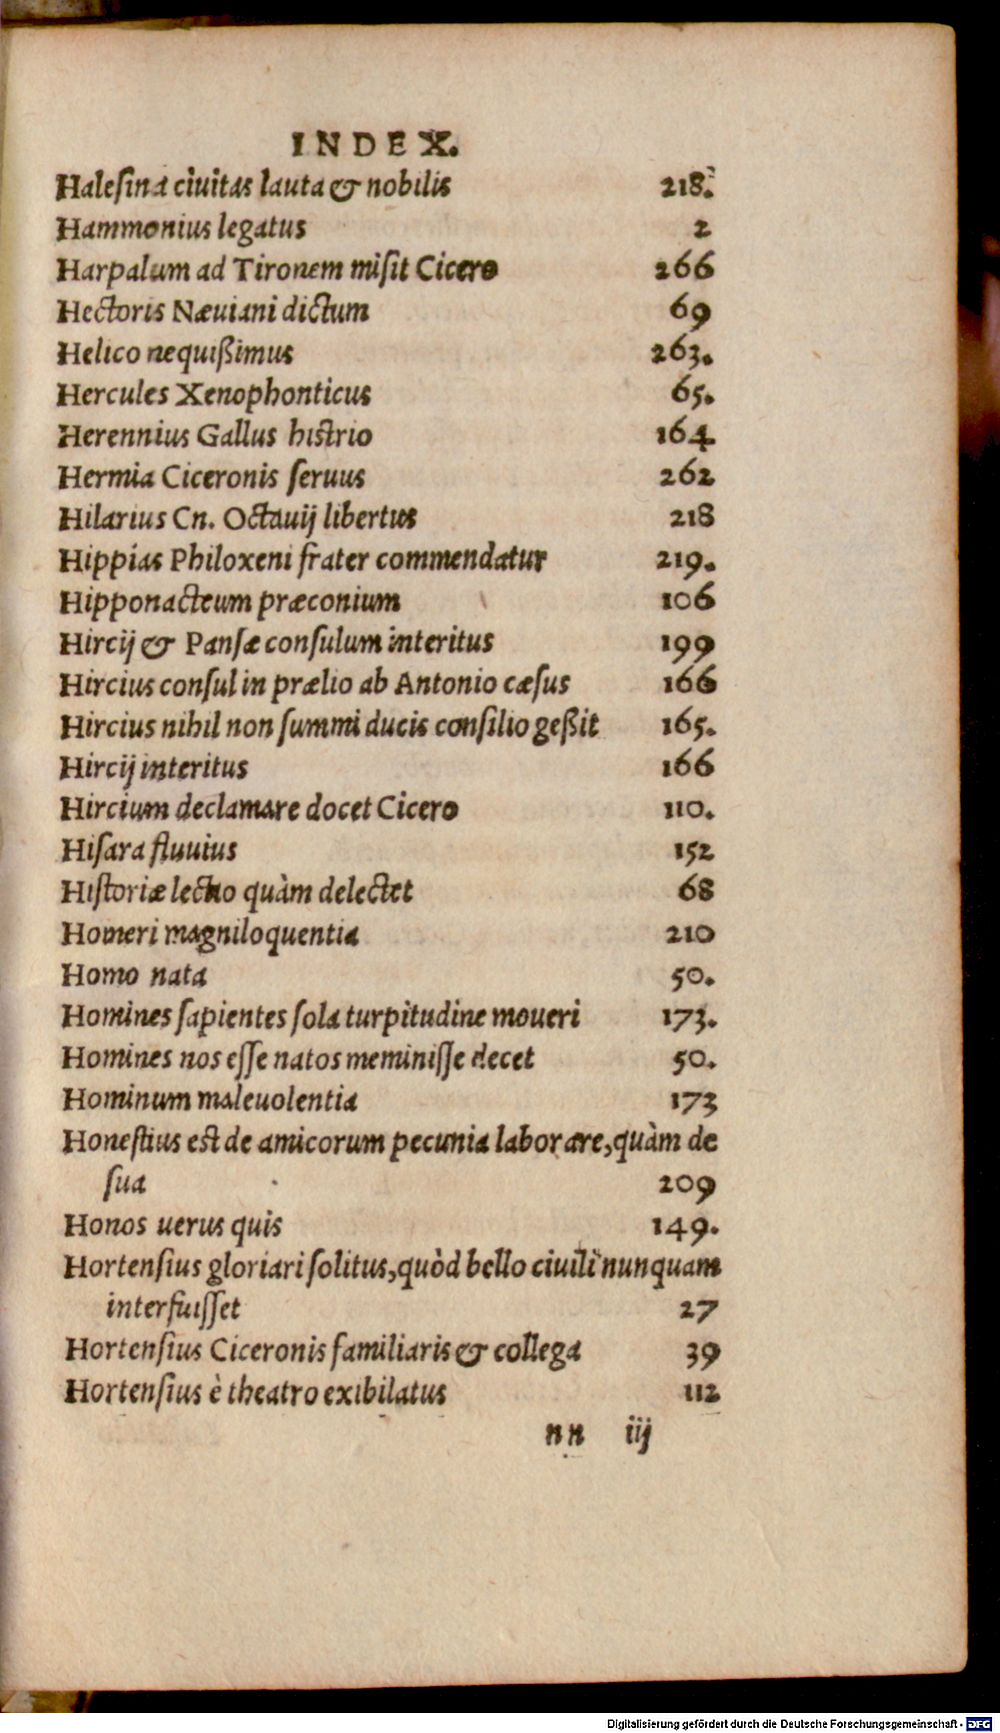 INDEX.
Haleſina ciuitas lauta & nobilis 218.
Hammonius legatus 2
Harpalum ad Tironem miſit Cicero 266
Hectoris Næuiani dictum 69
Helico nequißimus 263.
Hercules Xenophonticus 65.
Herennius Gallus histrio 164
Hermia Ciceronis ſeruus 262
Hilarius Cn. Octauij libertus 218
Hippias Philoxeni frater commendatur 219.
Hipponacteum præconium 106
Hircij & Panſæ conſulum interitus 199
Hircius conſul in prælio ab Antonio cæſus 166
Hircius nihil non ſummi ducis conſilio geßit 165.
Hircij interitus 166
Hircium declamare docet Cicero 110.
Hiſara fluuius 152
Hiſtoriæ lectio quàm delectet 68
Homeri magniloquentia 210
Homo nata 50.
Homines ſapientes ſola turpitudine moueri 173.
Homines nos eſſe natos meminiſſe decet 50.
Hominum maleuolentia 173
Honeſtius est de amicorum pecunia laborare, quàm de
ſua 209
Honos uerus quis 149.
Hortenſius gloriari ſolitus, quòd bello ciuili nunquam
interfuiſſet 27
Hortenſius Ciceronis familiaris & collega 39
Hortenſius è theatro exibilatus 112
nn iij
Digitalisierung gefördert durch die Deutsche Forschungsgemeinschaft - DFG